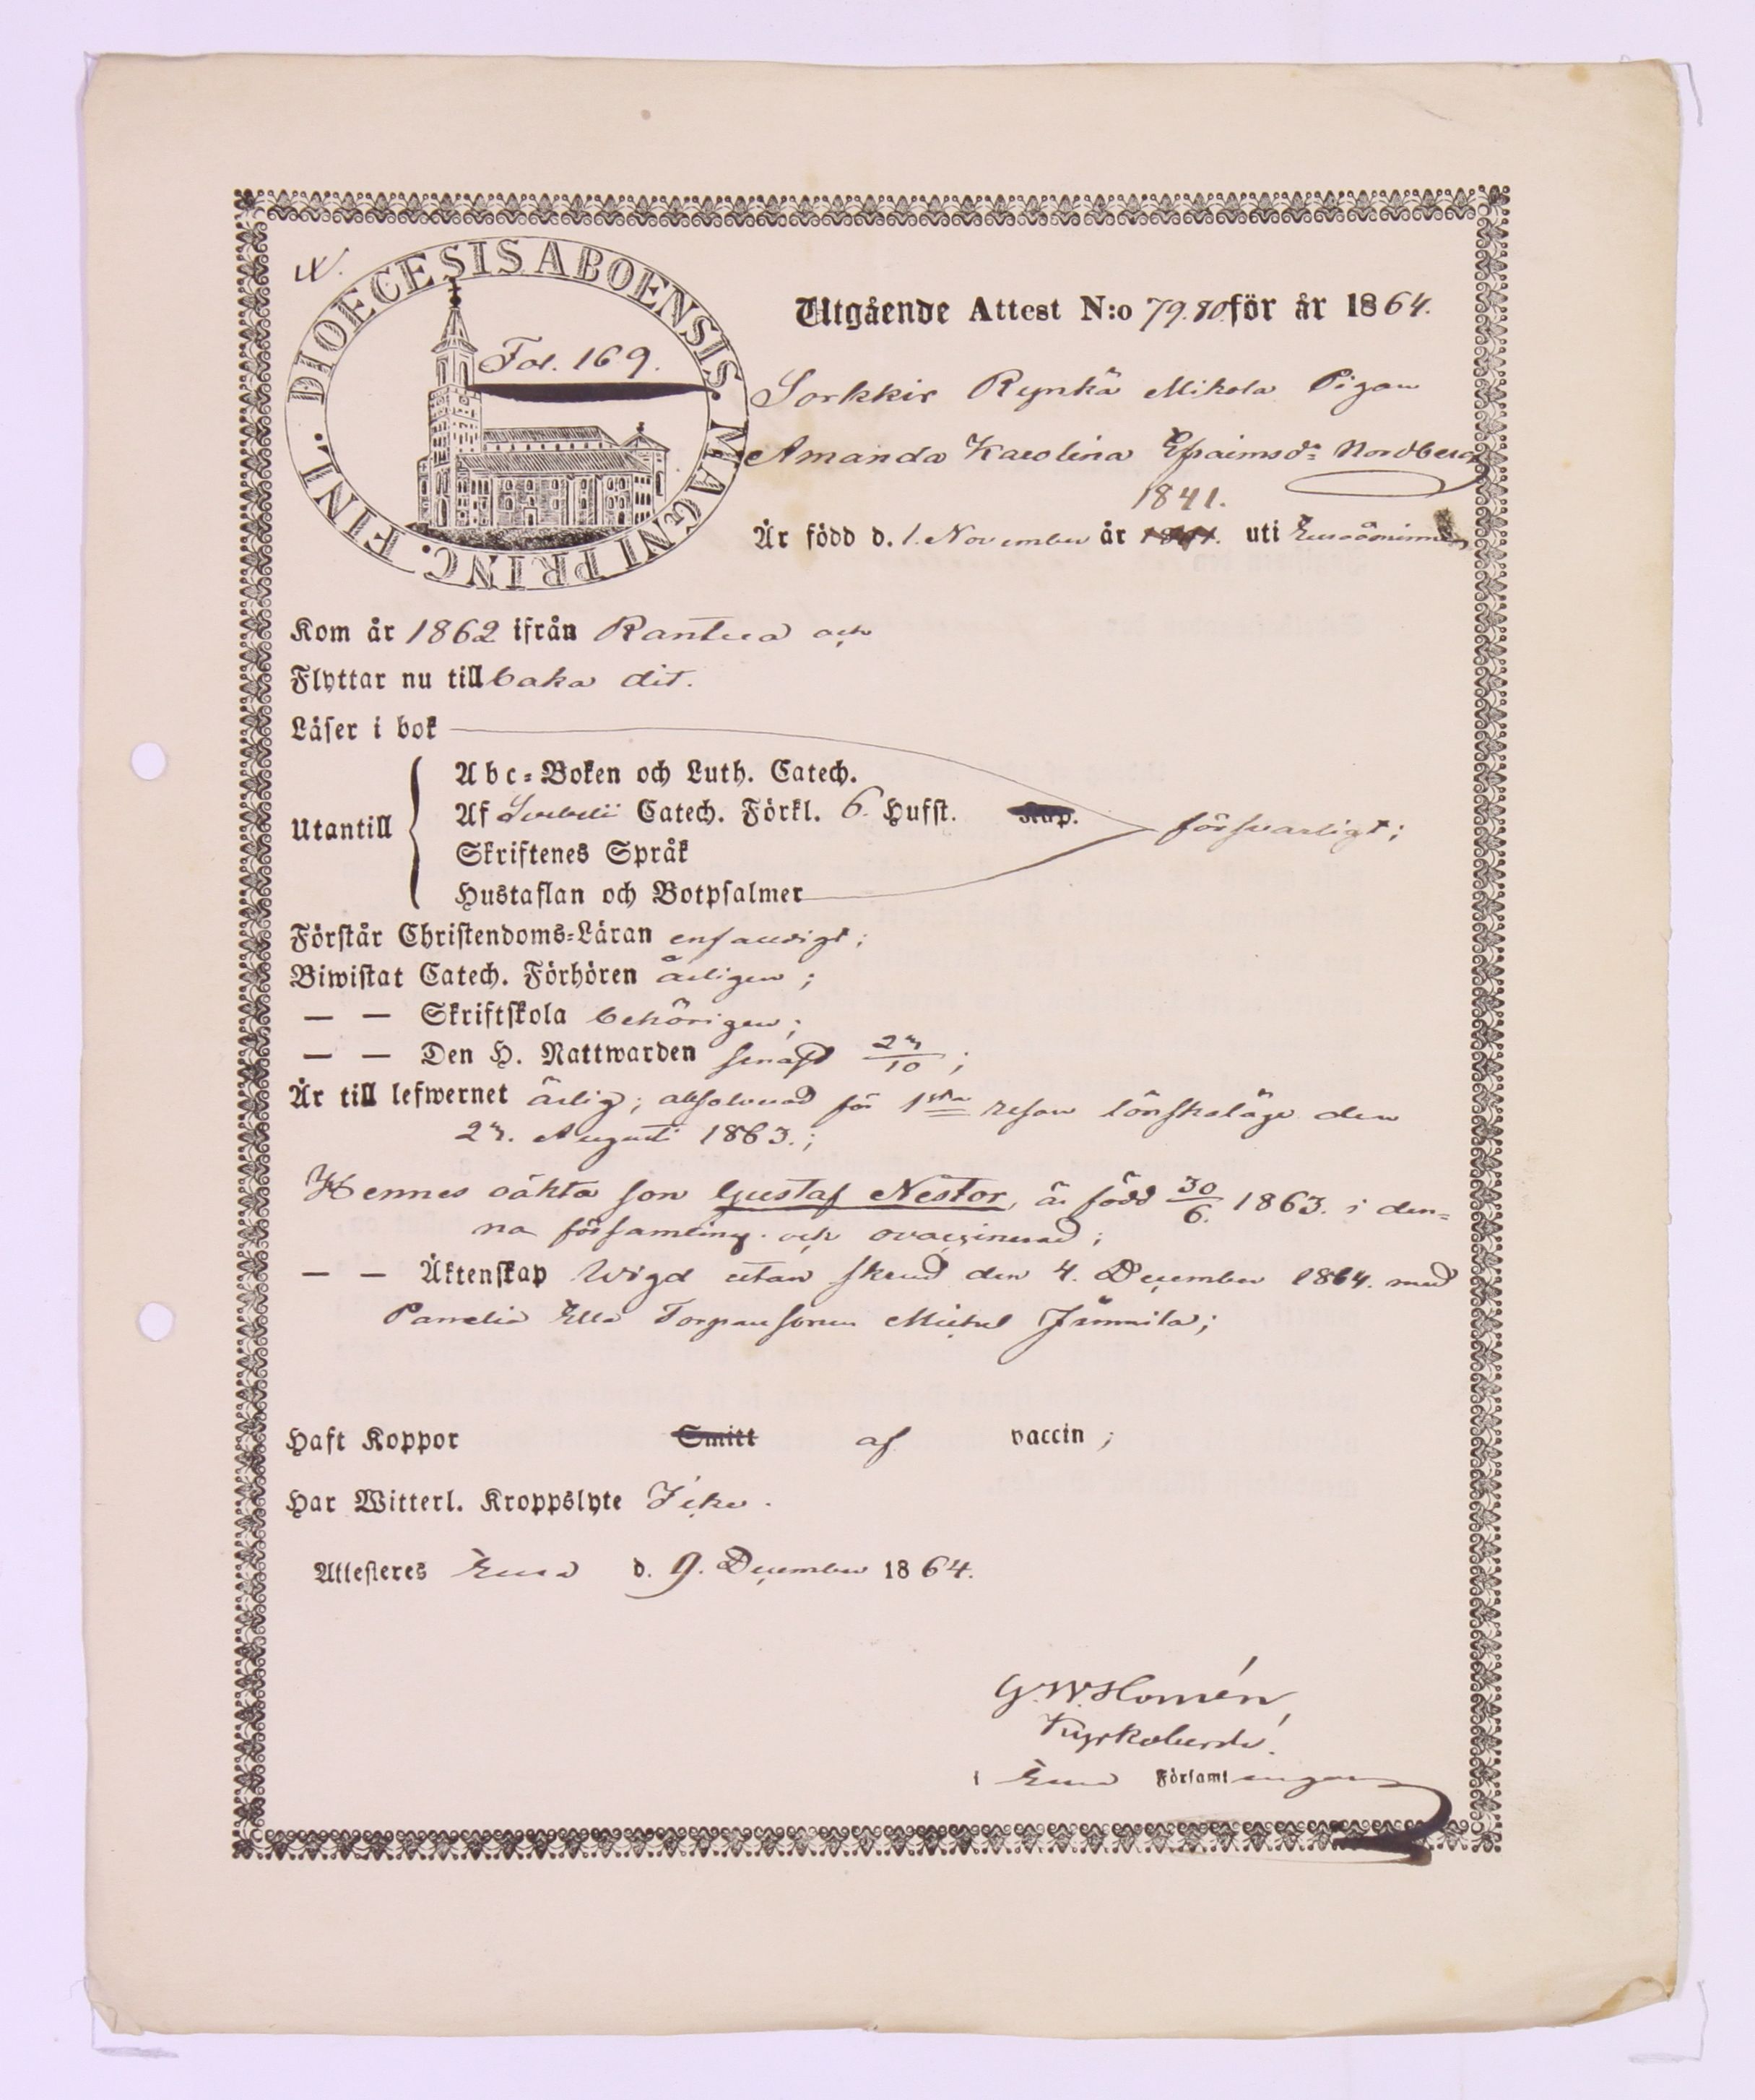 DIOECESIS ABOENSIS. MAGNI PRINC. FINL.
Fol. 169.
Utgående Attest N:o 79.80 för år 1864.
Sorkkis Rynkä Mikola Pigan
Amanda Karolina Efraimsd:r Nordberg
1841.
Är född d. 1. November år uti
Kom år 1862 ifrån Rantica och
Flyttar nu tillbaka dit.
Läser i bok
Utantill
Abc-Boken och Luth. Catech.
Af Svebelii Catech. Förkl. 6. Hufst. Kap.
försvarligt;
Skriftenes Språk
Hustaflan och Botpsalmer
Förstår Christendoms-Läran enfaldigt;
Biwistat Catech. Förhören årligen;
— — Skriftskola behörigen;
— — Den H. Nattwarden senast /10;
Är till lefwernet ärlig; absolverad för 1sta resan lönskaläge den
2 . Augusti 1863.;
Hennes oäkta son Gustaf Nestor, är född 30/6. 1863. i den-
na församling och ovaccinerad;
— — Äktenskap Wigd utan skrud den 4. December 1864. med
Pamelia Ella Torparsonen Michel
Haft Koppor Smitt af vaccin;
Har Witterl. Kroppslyte Icke.
Attesteres Eura d. 9. December 1864.
G. W. Homén,
Kyrkoherde.
i Eura Församlingar